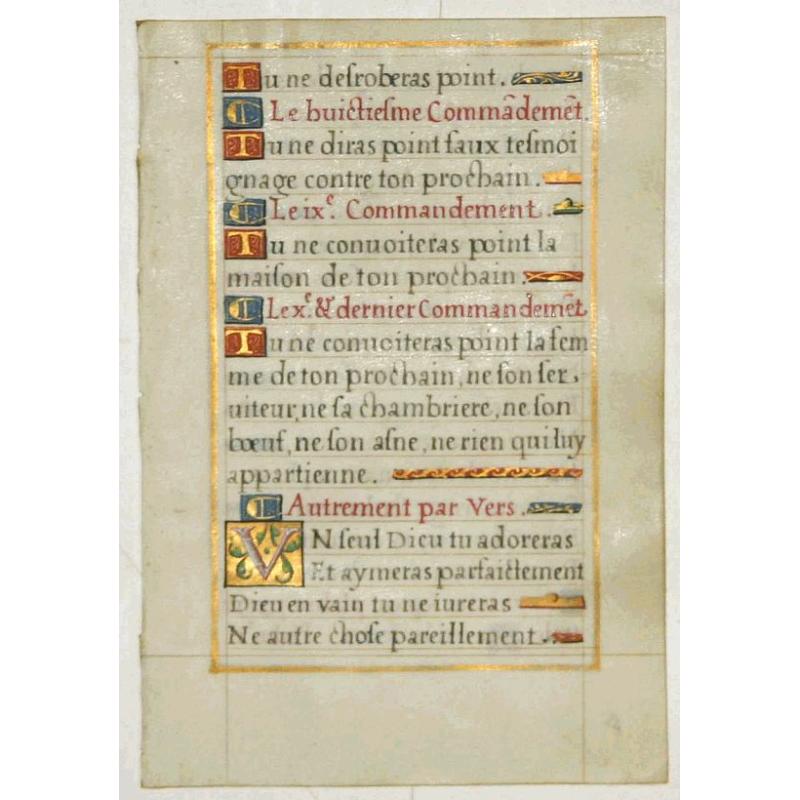 Tu ne desroberas point.
Le huictiesme Commãdemẽt.
Tu ne diras point faux tesmoi
gnage contre ton prochain.
Le ixᵉ. Commandement.
Tu ne conuoiteras point la
maison de ton prochain.
Le xᵉ. & dernier Commandemẽt.
Tu ne conuoiteras point la fem
me de ton prochain, ne son ser,
uiteur, ne sa chambriere, ne son
bœuf, ne son asne, ne rien qui luy
appartienne.
Autrement par Vers.
VN seul Dieu tu adoreras
Et aymeras parfaictement
Dieu en vain tu ne iureras
Ne autre chose pareillement.